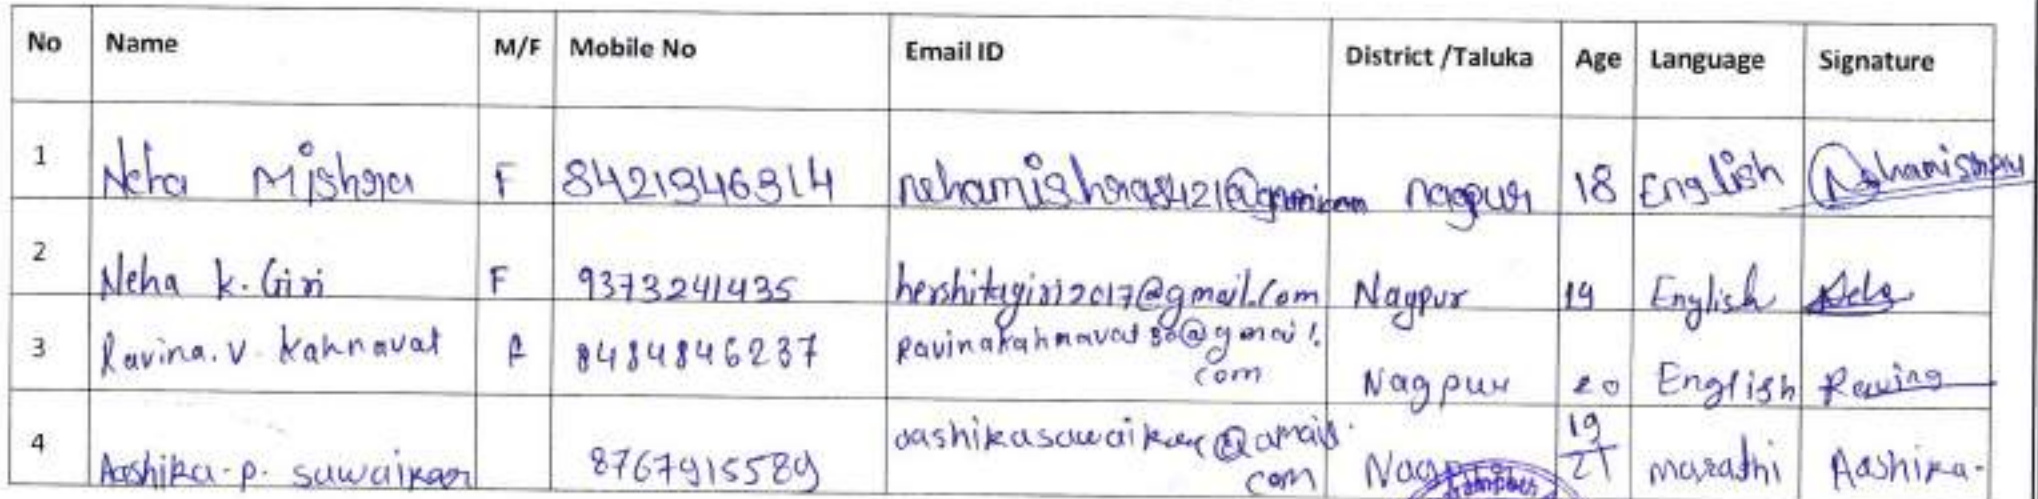 No Name M/F Mobile No Email ID District /Taluka Age Language Signature
1 Neha Mishra F 8421346314 nehamishra8421@gmail.com Nagpur 18 English Nehamishra
2 Neha k. Giri F 9373241435 hershitagiri2017@gmail.com Nagpur 19 English Neha
3 Ravina. v. Kahnavat F 8484846237 Ravinakahnavat30@gmail.
com
Nagpur 20 English Ravina
4 Aashika. p. sawaikar 8767915589 aashikasawaikar@gmail.
com
Nagpur 19
21 marathi Aashika-